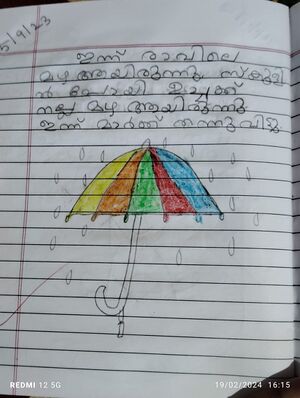 5/9/23
ഇന്ന് രാവിലെ
മഴ ആയിരുന്നു. സ്കൂളി
ൻ പോയി ഉച്ചക്ക്
നല്ല മഴ ആയിരുന്നു
ഇന്ന് മാർക്ക് തന്നുവിട്ടു.
REDMI 12 5G
19/02/2024 16:15